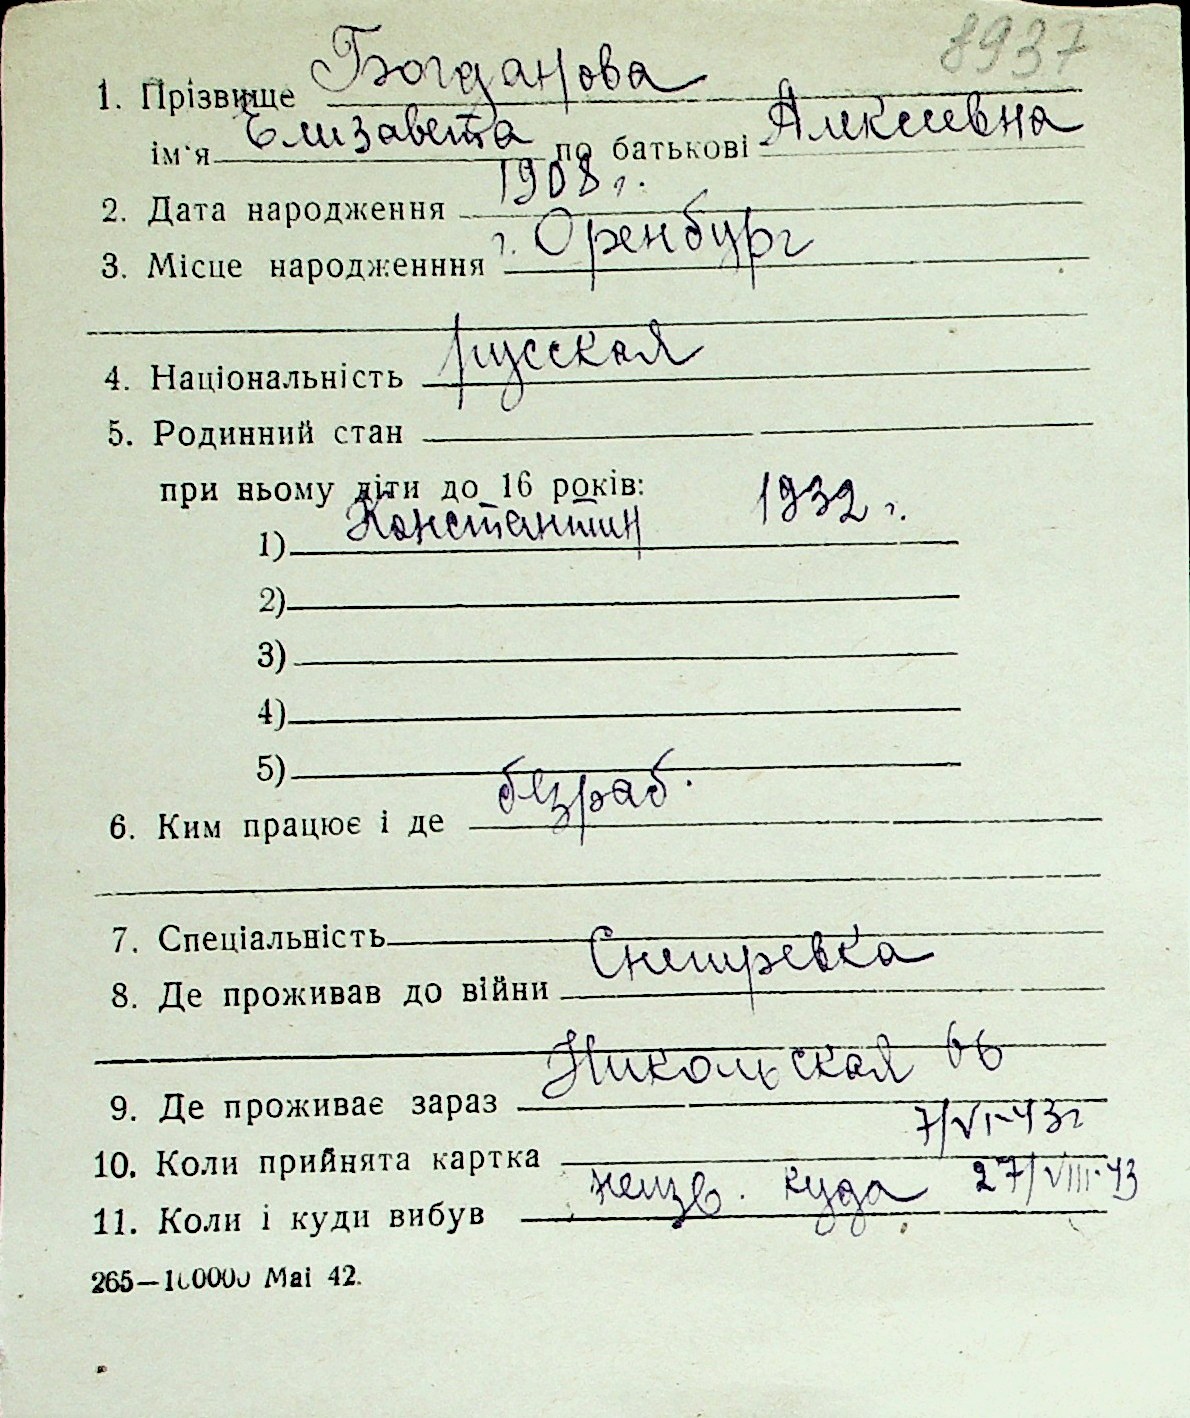 8937
1. Прізвище Богданова
ім'я Елизавета по батькові Алексеевна
2. Дата народження 1908 г.
3. Місце народженння г. Оренбург
4. Національність русская
5. Родинний стан
при ньому діти до 16 років:
1) Константин 1932 г.
2)
3)
4)
5)
6. Ким працює і де безраб.
7. Спеціальність
8. Де проживав до війни Снегиревка
9. Де проживає зараз Никольская 66
10. Коли прийнята картка 7/VI-43г
11. Коли і куди вибув неизв. куда 27/VIII-43
265—10000 Mai 42.